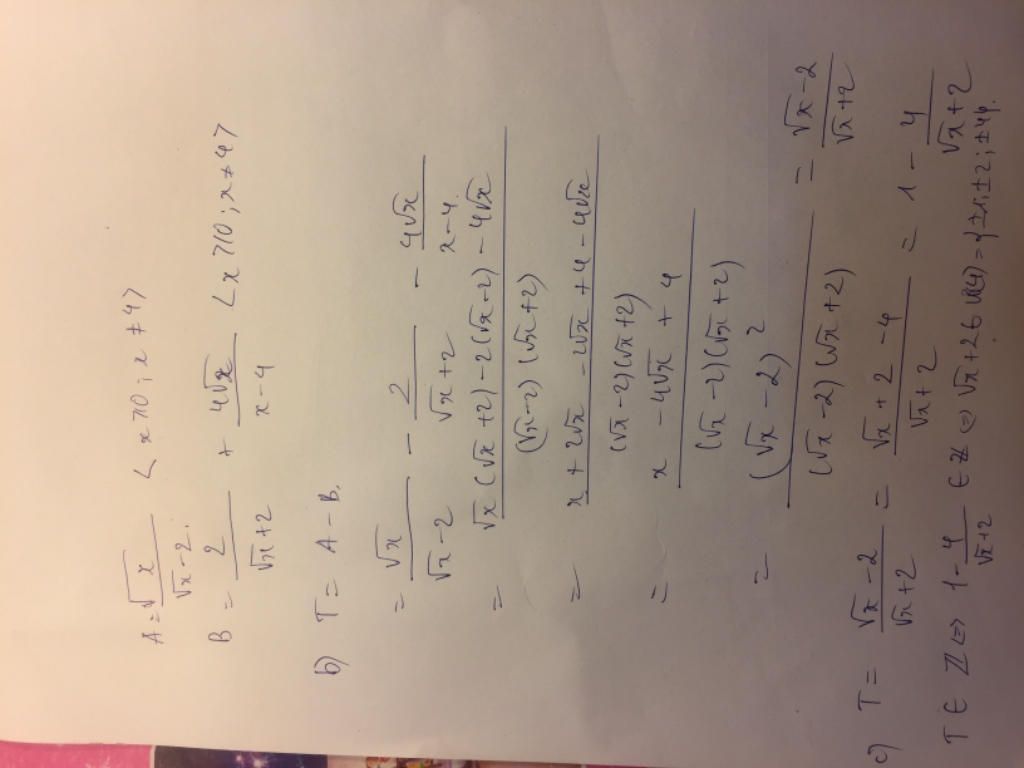 A = √x / (√x - 2). < x ≥ 0 ; x ≠ 4 >
B = 2 / (√x + 2) + 4√x / (x - 4) < x ≥ 0 ; x ≠ 4 >
b) T = A - B.
= √x / (√x - 2) - 2 / (√x + 2) - 4√x / (x - 4)
= (√x (√x + 2) - 2 (√x - 2) - 4√x) / ((√x - 2) (√x + 2))
= (x + 2√x - 2√x + 4 - 4√x) / ((√x - 2)(√x + 2))
= (x - 4√x + 4) / ((√x - 2)(√x + 2))
= (√x - 2)² / ((√x - 2)(√x + 2)) = (√x - 2) / (√x + 2)
c) T = (√x - 2) / (√x + 2) = (√x + 2 - 4) / (√x + 2) = 1 - 4 / (√x + 2)
T ∈ Z ⇔ 1 - 4 / (√x + 2) ∈ Z ⇔ √x + 2 ∈ Ư(4) = {±1; ±2; ±4}.